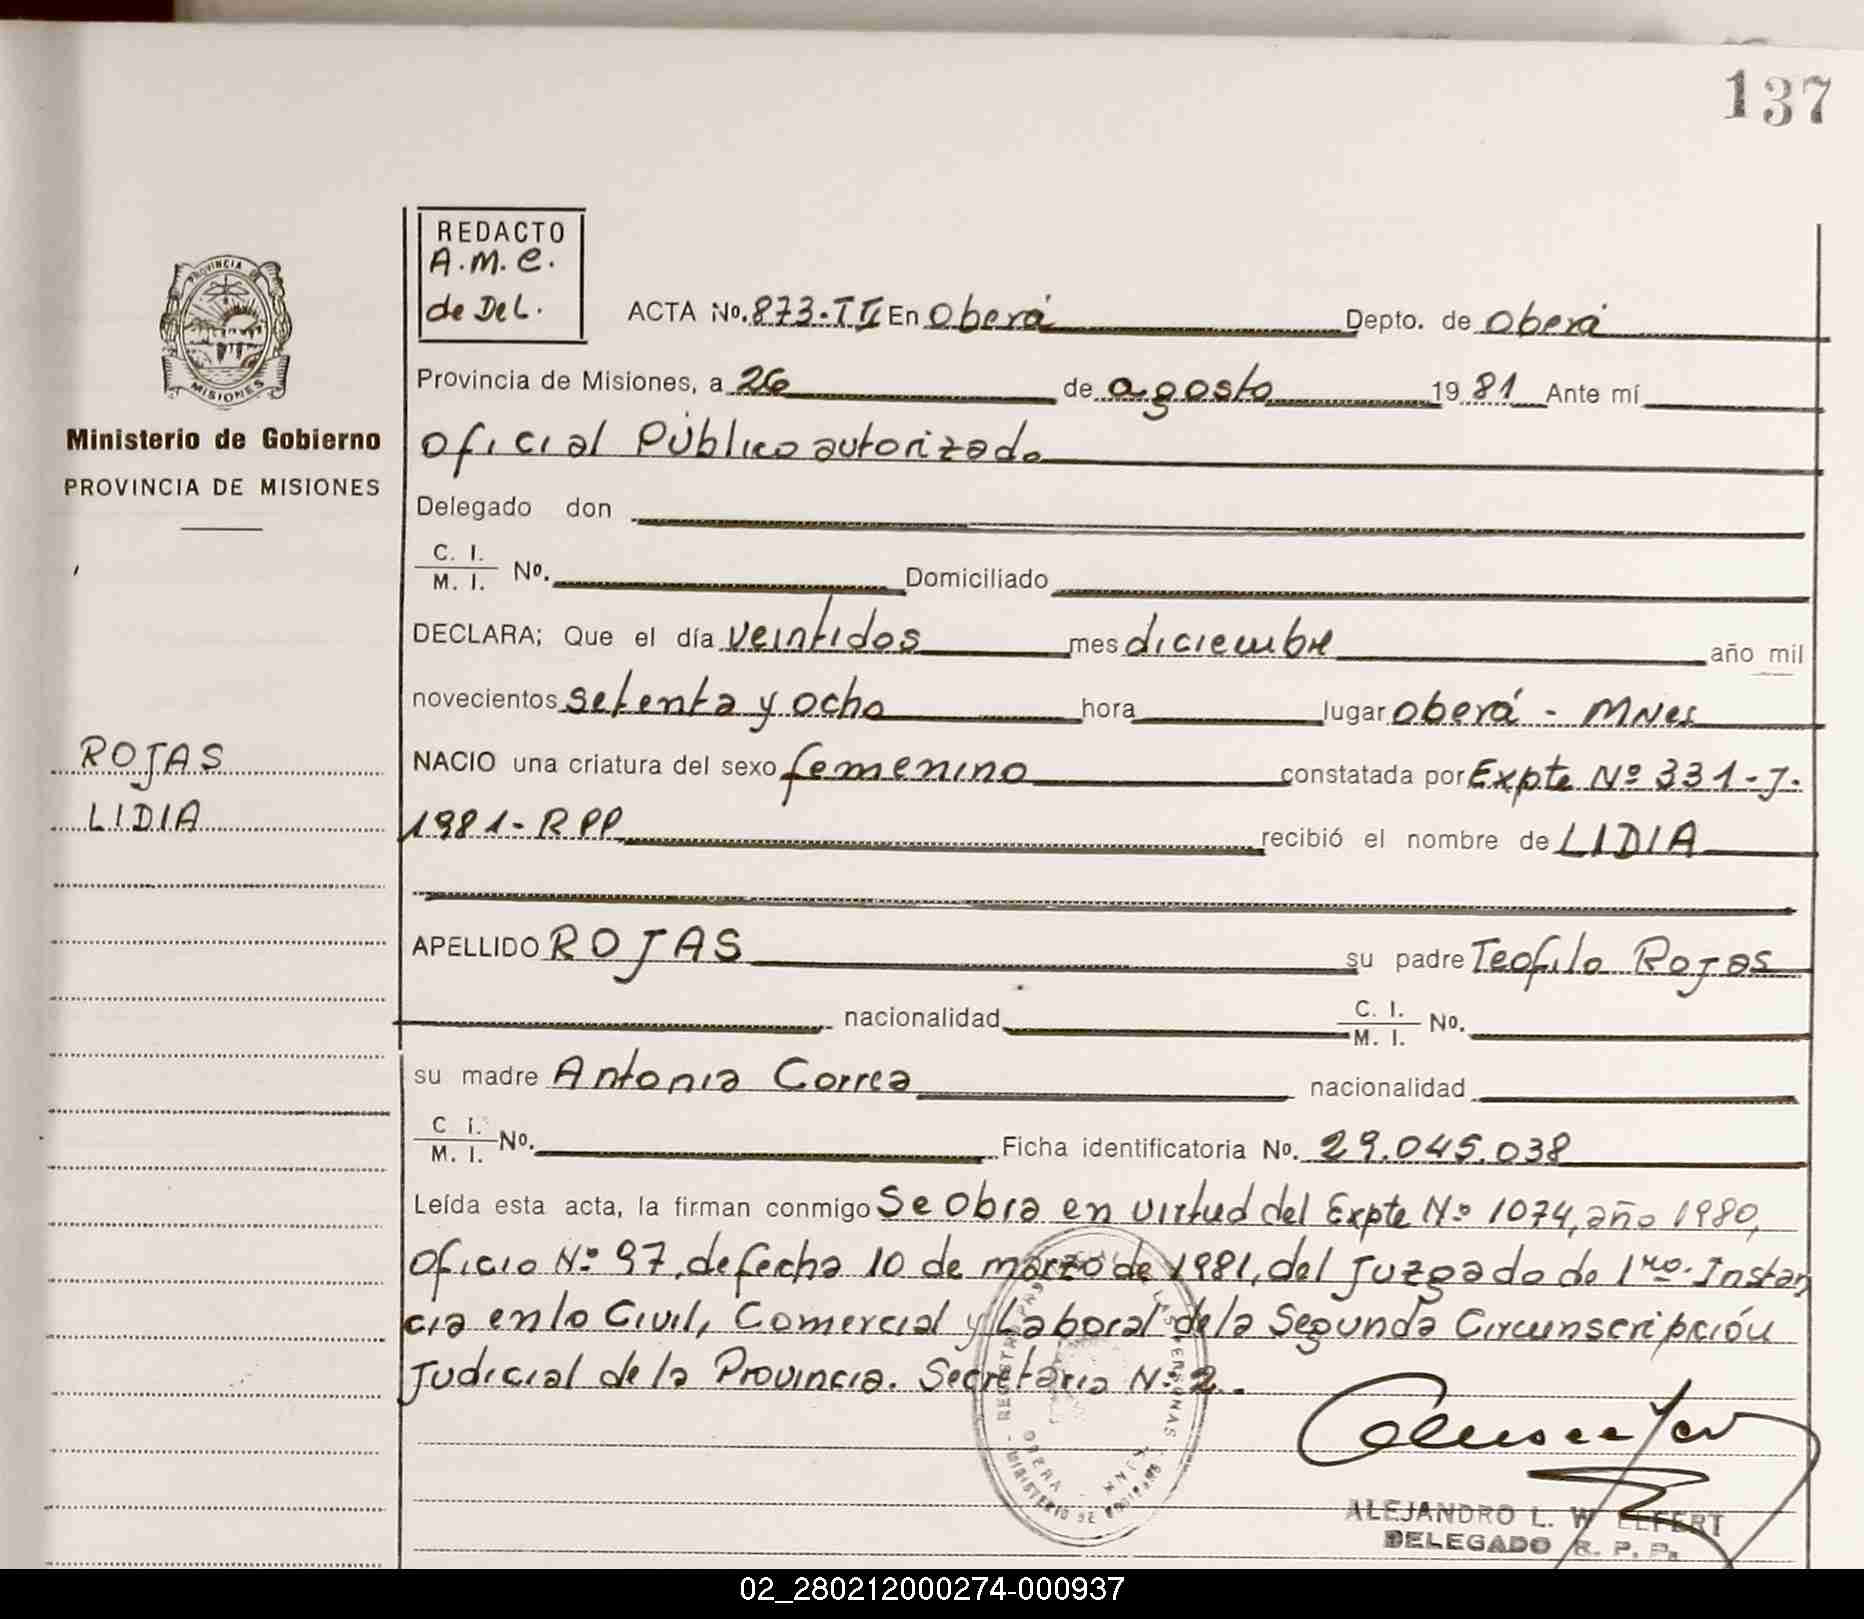 137
REDACTO
A.M.E.
de Del.
PROVINCIA DE
MISIONES
Ministerio de Gobierno
PROVINCIA DE MISIONES
ROJAS
LIDIA
ACTA No. 873-TII En Oberá Depto. de Oberá
Provincia de Misiones, a 26 de agosto 1981 Ante mí
Oficial Público autorizado
Delegado don
C. I.
M. I. No. Domiciliado
DECLARA; Que el día veintidos mes diciembre año mil
novecientos setenta y ocho hora lugar Oberá - MNes
NACIO una criatura del sexo femenino constatada por Expte Nº 331-J-
1981-RPP recibió el nombre de LIDIA
APELLIDO ROJAS su padre Teofilo Rojas
nacionalidad C. I.
M. I. No.
su madre Antonia Correa nacionalidad
C. I.
M. I. No. Ficha identificatoria No. 29.045.038
Leída esta acta, la firman conmigo Se Obra en virtud del Expte Nº 1074, año 1980,
Oficio Nº 97, de fecha 10 de marzo de 1981, del Juzgado de 1ra. Instan
cia en lo Civil, Comercial y Laboral de la Segunda Circunscripción
Judicial de la Provincia. Secretaria Nº 2.
ALEJANDRO L. W ELFERT
DELEGADO R. P. P.
02_280212000274-000937